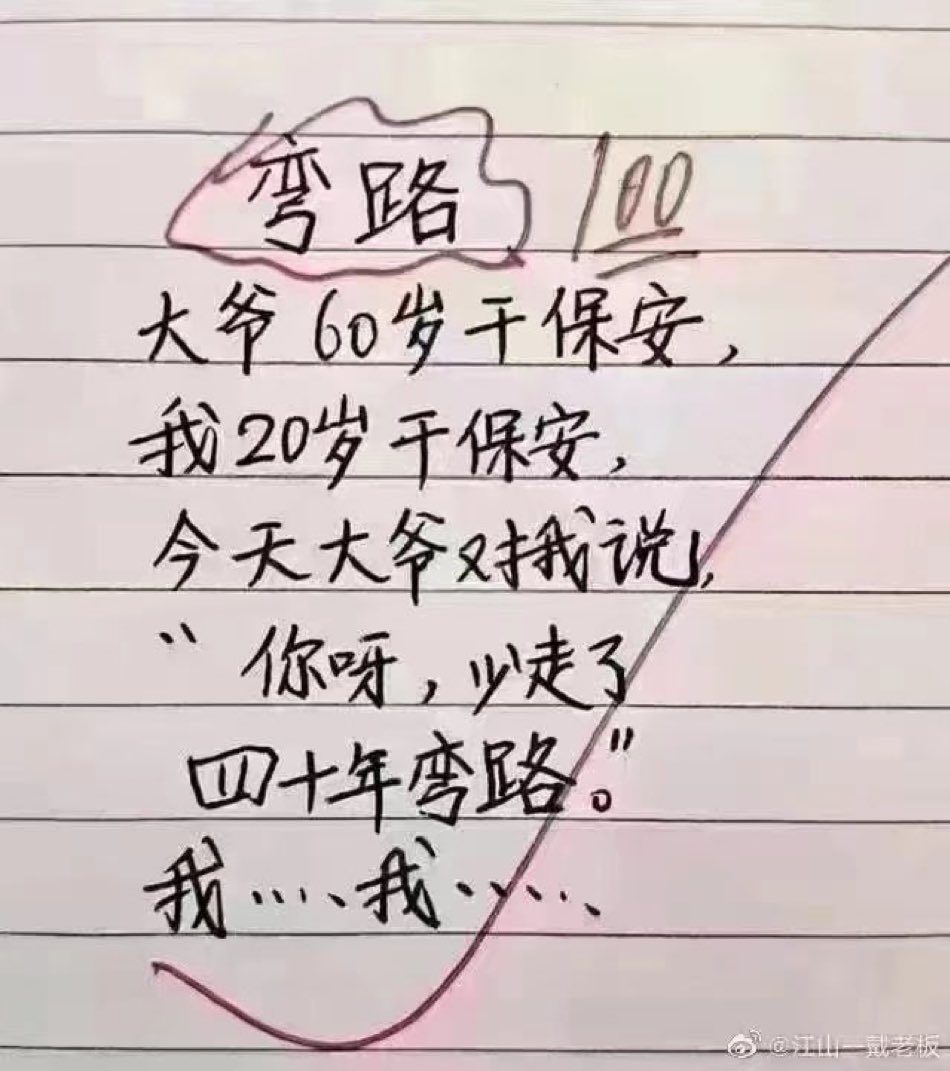 弯路 100
大爷60岁干保安,
我20岁干保安,
今天大爷对我说,
“你呀,少走了
四十年弯路。”
我....、我......
@江山一戴老板